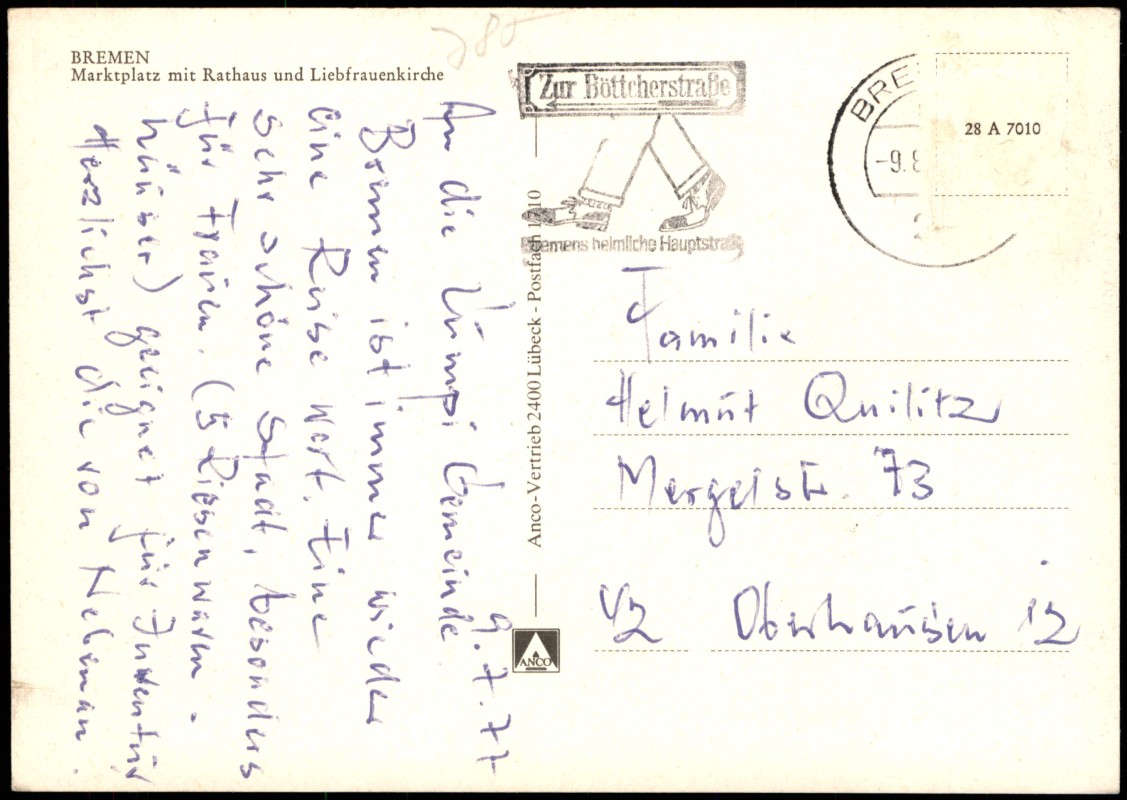 BREMEN
Marktplatz mit Rathaus und Liebfrauenkirche
9.7.77
An die Lümpi Gemeinde
Bremen ist immer wieder
eine Reise wert. Eine
sehr schöne Stadt, besonders
für Frauen. (5 Riesenwaren-
häuser) geeignet für Inventur
Herzlichst die von Nebenan.
Anco-Vertrieb 2400 Lübeck - Postfach 1710
ANCO
Zur Böttcherstraße
Bremens heimliche Hauptstraße
BRE
-9.8
28 A 7010
Familie
Helmut Quilitz
Mergelstr. 73
42 Oberhausen 12